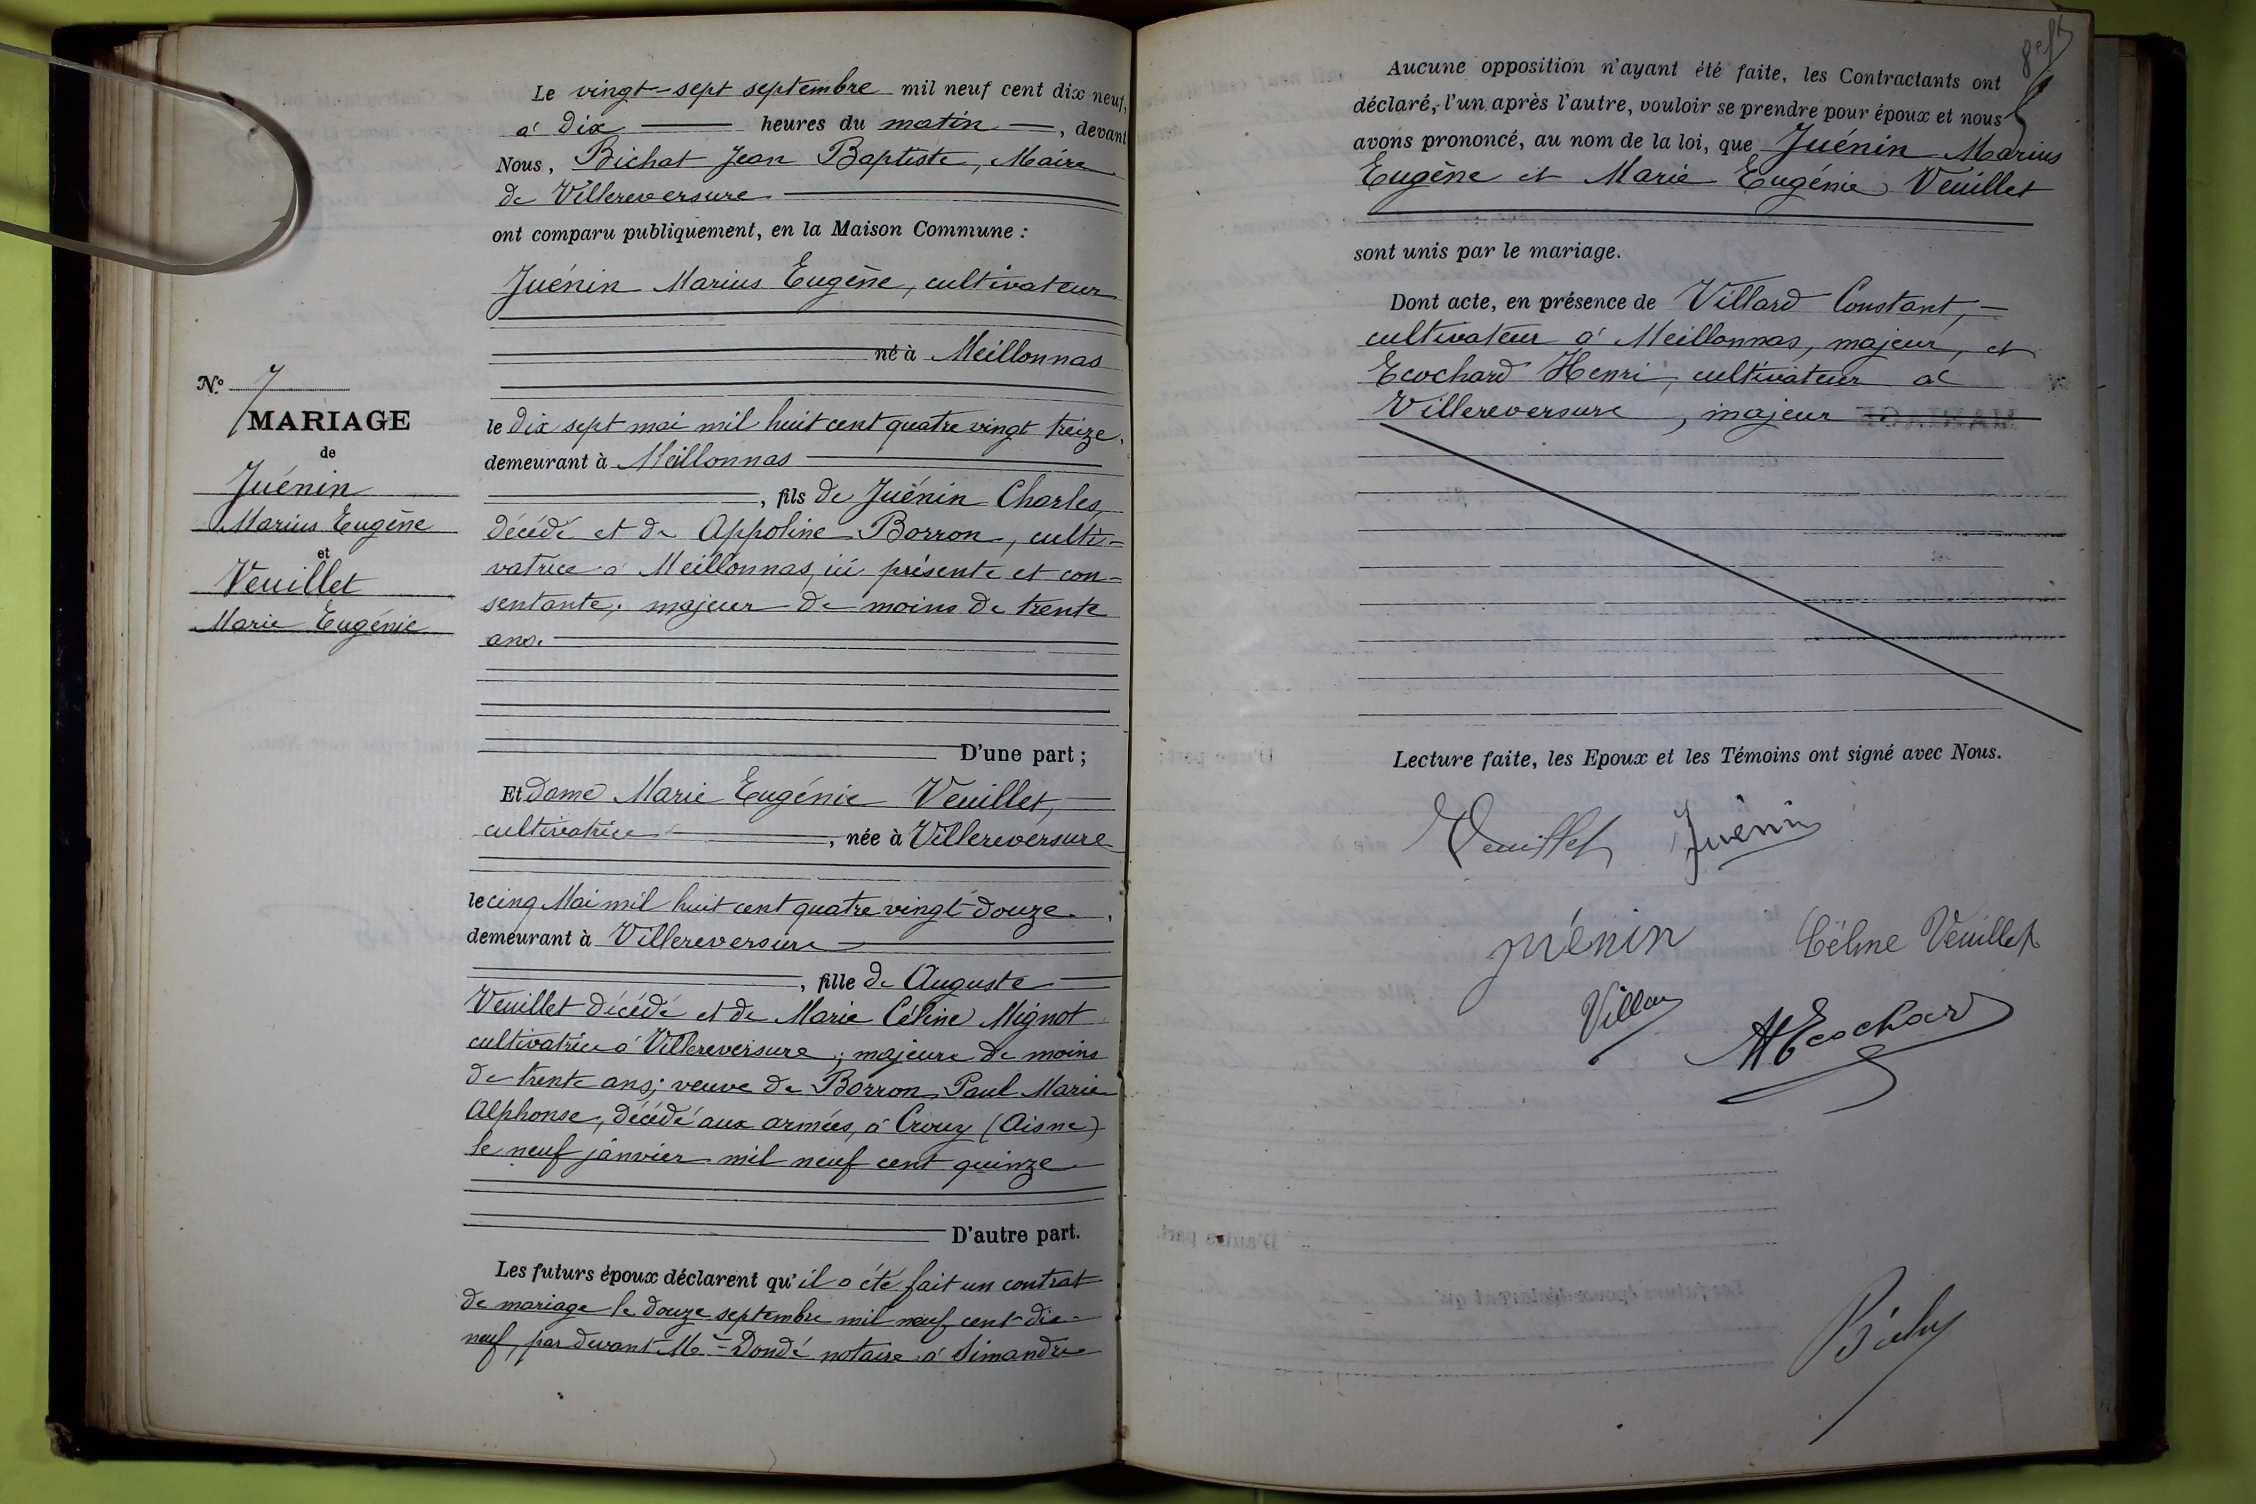 N.º 7
MARIAGE
de
Juénin
Marius Eugène
et
Veuillet
Marie Eugénie
Le vingt-sept septembre mil neuf cent dix neuf,
à dix heures du matin, devant
Nous, Bichat Jean Baptiste, Maire
de Villereversure
ont comparu publiquement, en la Maison Commune :
Juénin Marius Eugène, cultivateur
né à Meillonnas
le dix sept mai mil huit cent quatre vingt treize,
demeurant à Meillonnas
, fils de Juénin Charles,
décédé et de Appoline Borron, culti=
vatrice à Meillonnas, ici présente et con=
sentante; majeur de moins de trente
ans.
D'une part ;
Et dame Marie Eugénie Veuillet,
cultivatrice, née à Villereversure
le cinq Mai mil huit cent quatre vingt douze,
demeurant à Villereversure
, fille de Auguste
Veuillet décédé et de Marie Céline Mignot
cultivatrice à Villereversure; majeure de moins
de trente ans; veuve de Borron Paul Marie
Alphonse, décédé aux armées, à Crouy (Aisne)
le neuf janvier mil neuf cent quinze
D'autre part.
Les futurs époux déclarent qu'il a été fait un contrat
de mariage le douze septembre mil neuf cent dix-
neuf, par devant Me Dondé notaire à Simandre
Aucune opposition n'ayant été faite, les Contractants ont
déclaré, l'un après l'autre, vouloir se prendre pour époux et nous
avons prononcé, au nom de la loi, que Juénin Marius
Eugène et Marie Eugénie Veuillet
sont unis par le mariage.
Dont acte, en présence de Villard Constant,
cultivateur à Meillonnas, majeur, et
Ecochard Henri, cultivateur à
Villereversure, majeur
Lecture faite, les Epoux et les Témoins ont signé avec Nous.
Veuillet Juénin
Juénin Céline Veuillet
Villard H Ecochard